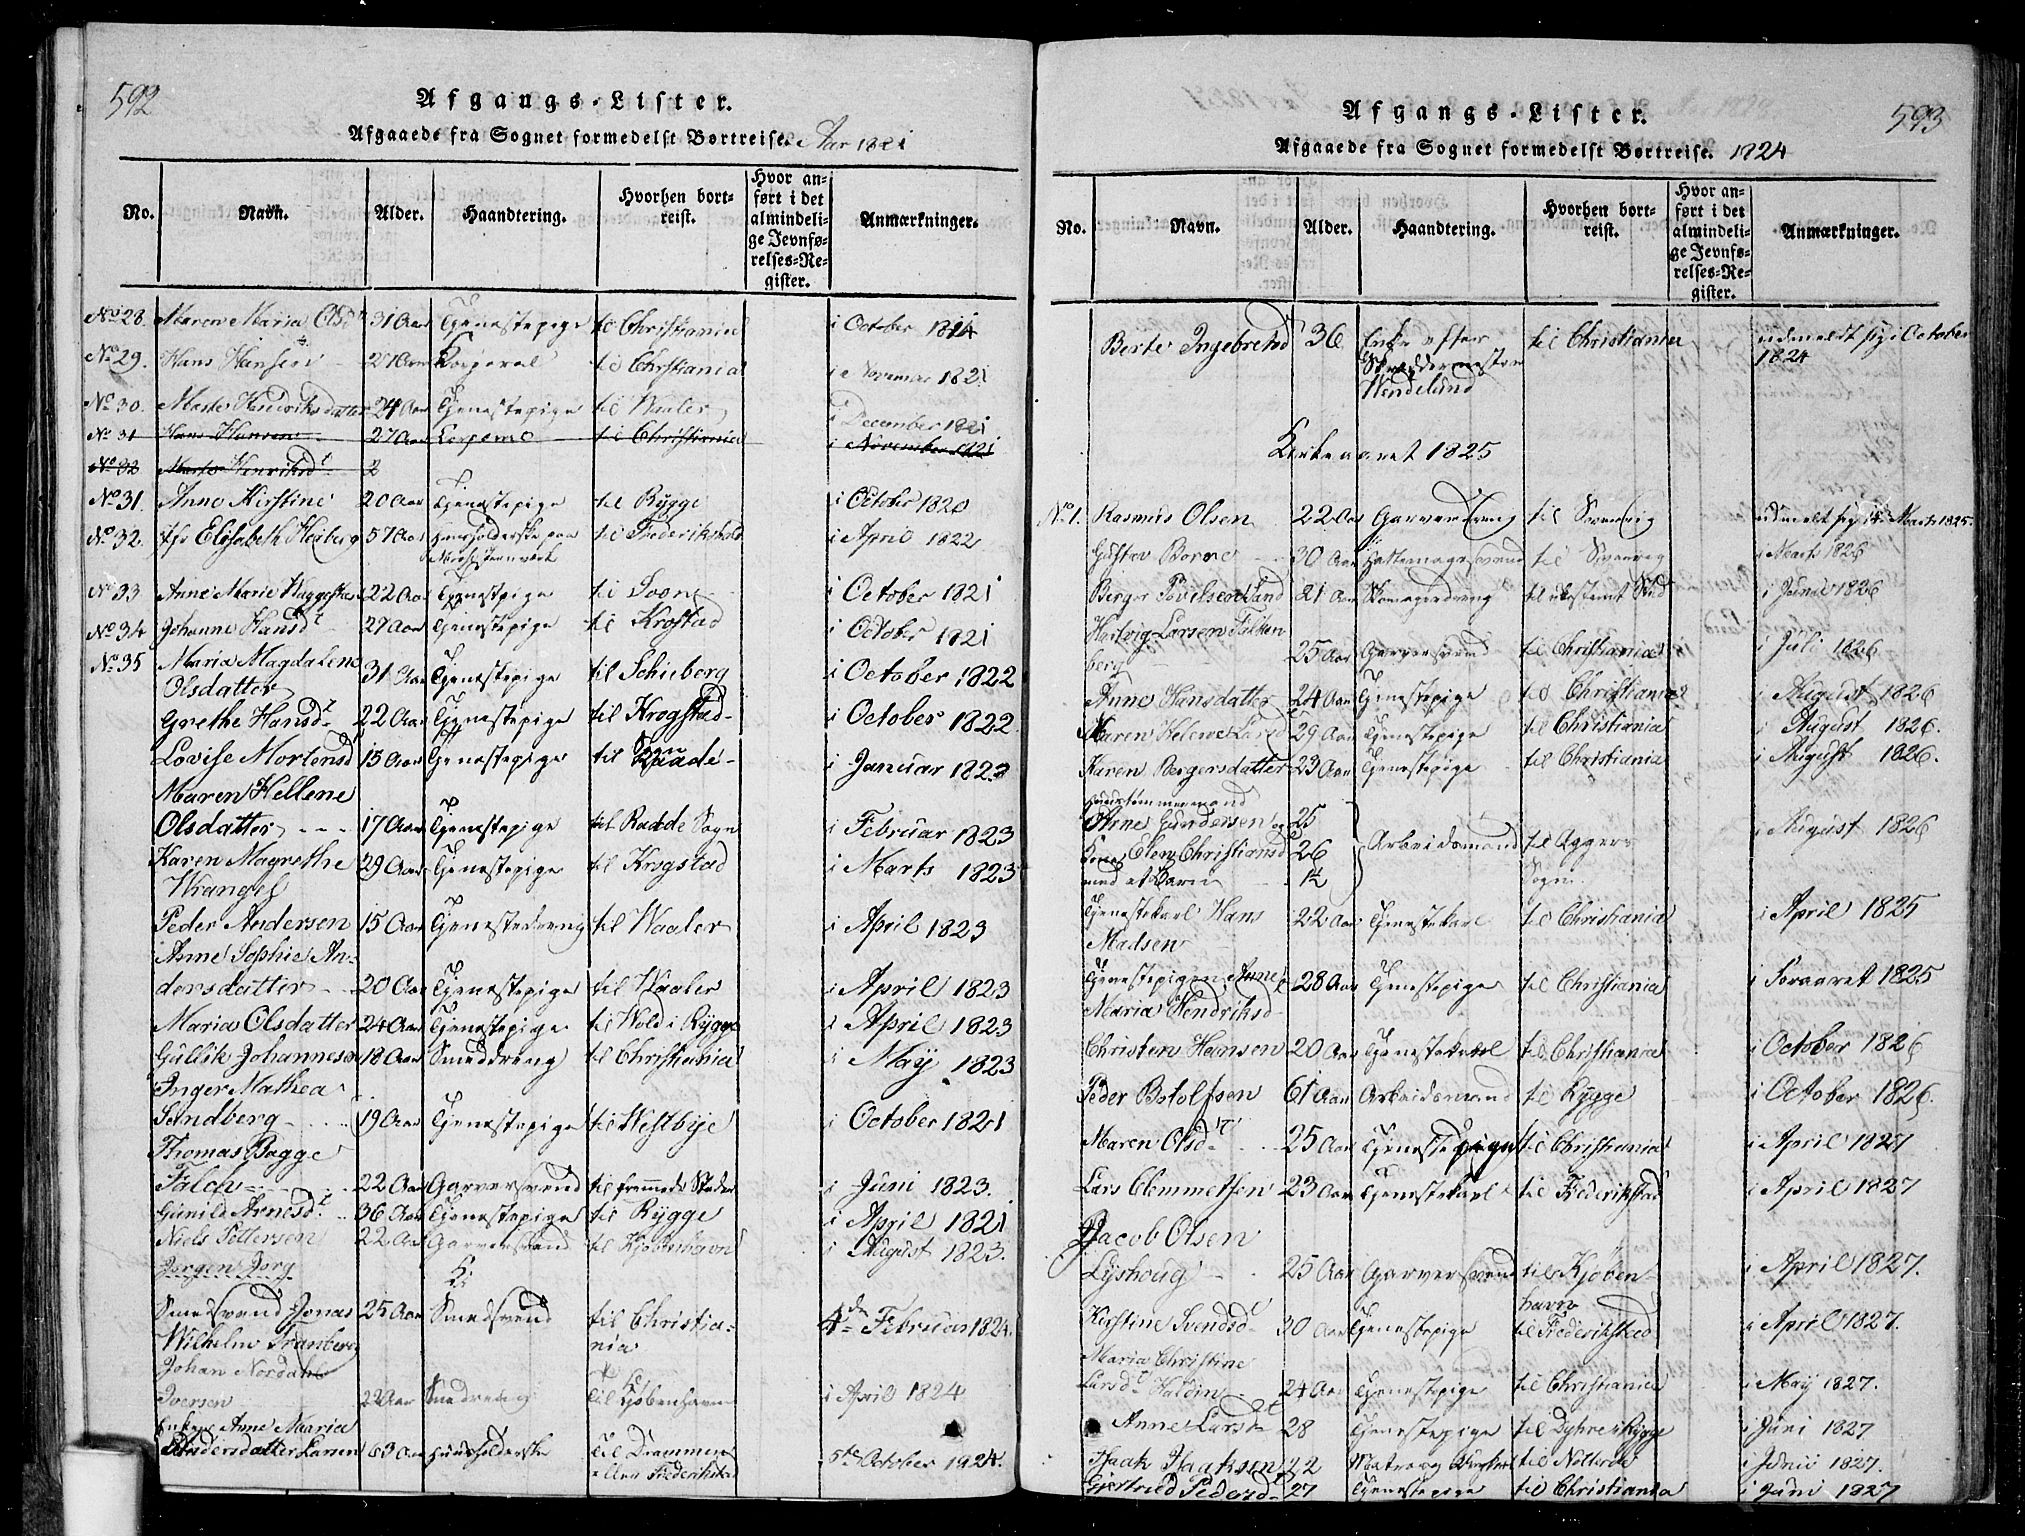 592
Afgangs-Lister.
Afgaaede fra Sognet formedelst Bortreise. Aar 1821
No. Navn. Alder. Haandtering. Hvorhen bortreist. Hvor anført i det almindelige Jevnførelses-Register. Anmærkninger.
No 28. Maren Maria Olsd 31 Aar Tjenestepige til Christiania i October 1821
No 29. Hans Hansen 27 Aar Korporal til Christiania i November 1821
No 30. Marte Hendriksdatter 24 Aar Tjenestepige til Waaler i December 1821
No 31 Hans Hansen 27 Aar Corporal til Christiania i November 1821
No 32 Marte Henriksdt 2
No 31. Anne Kirstine 20 Aar Tjenestepige til Rygge i October 1820
No 32. Elisabeth Heiberg 57 Aar til Frederikshald i April 1822
No 33 Anne Marie 22 Aar Tjenestepige til Soon i October 1821
No 34 Johanne Hansdt 27 Aar Tjenestepige til Krostad i October 1821
No 35 Maria Magdalene
Olsdatter 31 Aar Tjenestepige til Schiberg i October 1822
Grethe Hansdt 22 Aar Tjenestepige til Krogstad i October 1822
Lovise Mortensd 15 Aar Tjenestepige til Raade Sogn i Januar 1823
Maren Hellene
Olsdatter 17 Aar Tjenestepige til Raade Sogn i Februar 1823
Karen Magrethe
Wrangel 29 Aar Tjenestepige til Krogstad i Marts 1823
Peder Andersen 15 Aar Tjenestedreng til Waaler i April 1823
Anne Sophie An-
dersdatter 20 Aar Tjenestepige til Waaler i April 1823
Maria Olsdatter 24 Aar Tjenestepige til Wold i Rygge i April 1823
Gullik Johannesen 18 Aar Smeddreng til Christiania i May 1823
Inger Mathea
Sandberg 19 Aar Tjenestepige til Westbye i October 1821
Thomas Bagge
Falch 22 Aar Garversvend til fremmede Steder i Juni 1823.
Gunild Arnesdt 36 Aar Tjenestepige til Rygge i April 1821
Niels Pettersen 22 Aar Garversvend til Kjøbenhavn i August 1823.
Jørgen Jørg
Smedsvend Jonas 25 Aar Smedsvend til Christia- 4de Februar 1824.
Wilhelm Tranberg nia
Johan Nordahl
Iversen 22 Aar Smeddreng til Kjøbenhavn i April 1824
Enken Anne Maria
Andersdatter Larsen 63 Aar Huusholderske til Drammen 5te October 1824.

593
Afgangs-Lister.
Afgaaede fra Sognet formedelst Bortreise. 1824
No. Navn. Alder. Haandtering. Hvorhen bortreist. Hvor anført i det almindelige Jevnførelses-Register. Anmærkninger.
Berte Ingebretsd 36 Enke efter til Christiania udmeldt sig i October
Skreddermester 1824
Wendelund
Kirkeaaret 1825
No 1. Rasmus Olsen 22 Aar Garverdreng til udmelt sig Marts 1825.
Gustav 30 Aar Hattemagersvend til i Marts 1826
Berger Povelsen Sand 21 Aar Skomagerdreng til ubestemt Sted i Juni 1826
Hartvig Larsen Falken
berg 25 Aar Garversvend til Christiania i Juli 1826
Anne Hansdatter 24 Aar Tjenestepige til Christiania i August 1826
Maren Helene Larsd 29 Aar Tjenestepige til Christiania i August 1826.
Karen Bergersdatter 23 Aar Tjenestepige til Christiania i August 1826.
Huustømmermand
Arne Gundersen og 25 Arbeidsmand til Aggers i August 1826
Kone Olea Christiansd 26 Sogn
med et Barn 1½
Tjenestekarl Hans 22 Aar Tjenestekarl til Christiania i April 1825
Madsen
Tjenestepigen Anne 28 Aar Tjenestepige til Christiania i Foraaret 1825
Maria Hendriksd
Christen Hansen 20 Aar Tjenestekarl til Christiania i October 1826
Peder Botolfsen 61 Aar Arbeidsmand til Rygge i October 1826.
Maren Olsdt 25 Aar Tjenestepige til Christiania i April 1827
Lars Clemmetsen 23 Aar Tjenestekarl til Frederikstad i April 1827
Jacob Olsen
Lyshoug 25 Aar Garversvend til Kjøben- i April 1827.
havn
Kirstine Svendsd 30 Aar Tjenestepige til Frederikstad i April 1827.
Maria Christine
Larsd Haldin 24 Aar Tjenestepige til Christiania i May 1827.
Anne Larsdt 28 Tjenestepige til Dyhre i Rygge i Juni 1827
Isaak Isaksen 22 til Nøtterøe i Junii 1827.
Gjertrud Pedersd 27 Tjenestepige til Christiania i Juni 1827